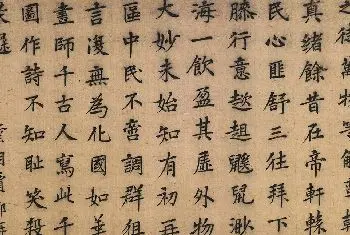 之徒萬物等
真緒餘昔在帝軒轅
民心匪舒三往拜下
膝行意趑趄飄渺
海一飲盈其虛外物
大妙未始知有初再
區中民不啻調群狙
言復無為化國如華
畫師千古人寫此千
圖作詩不知恥笑殺